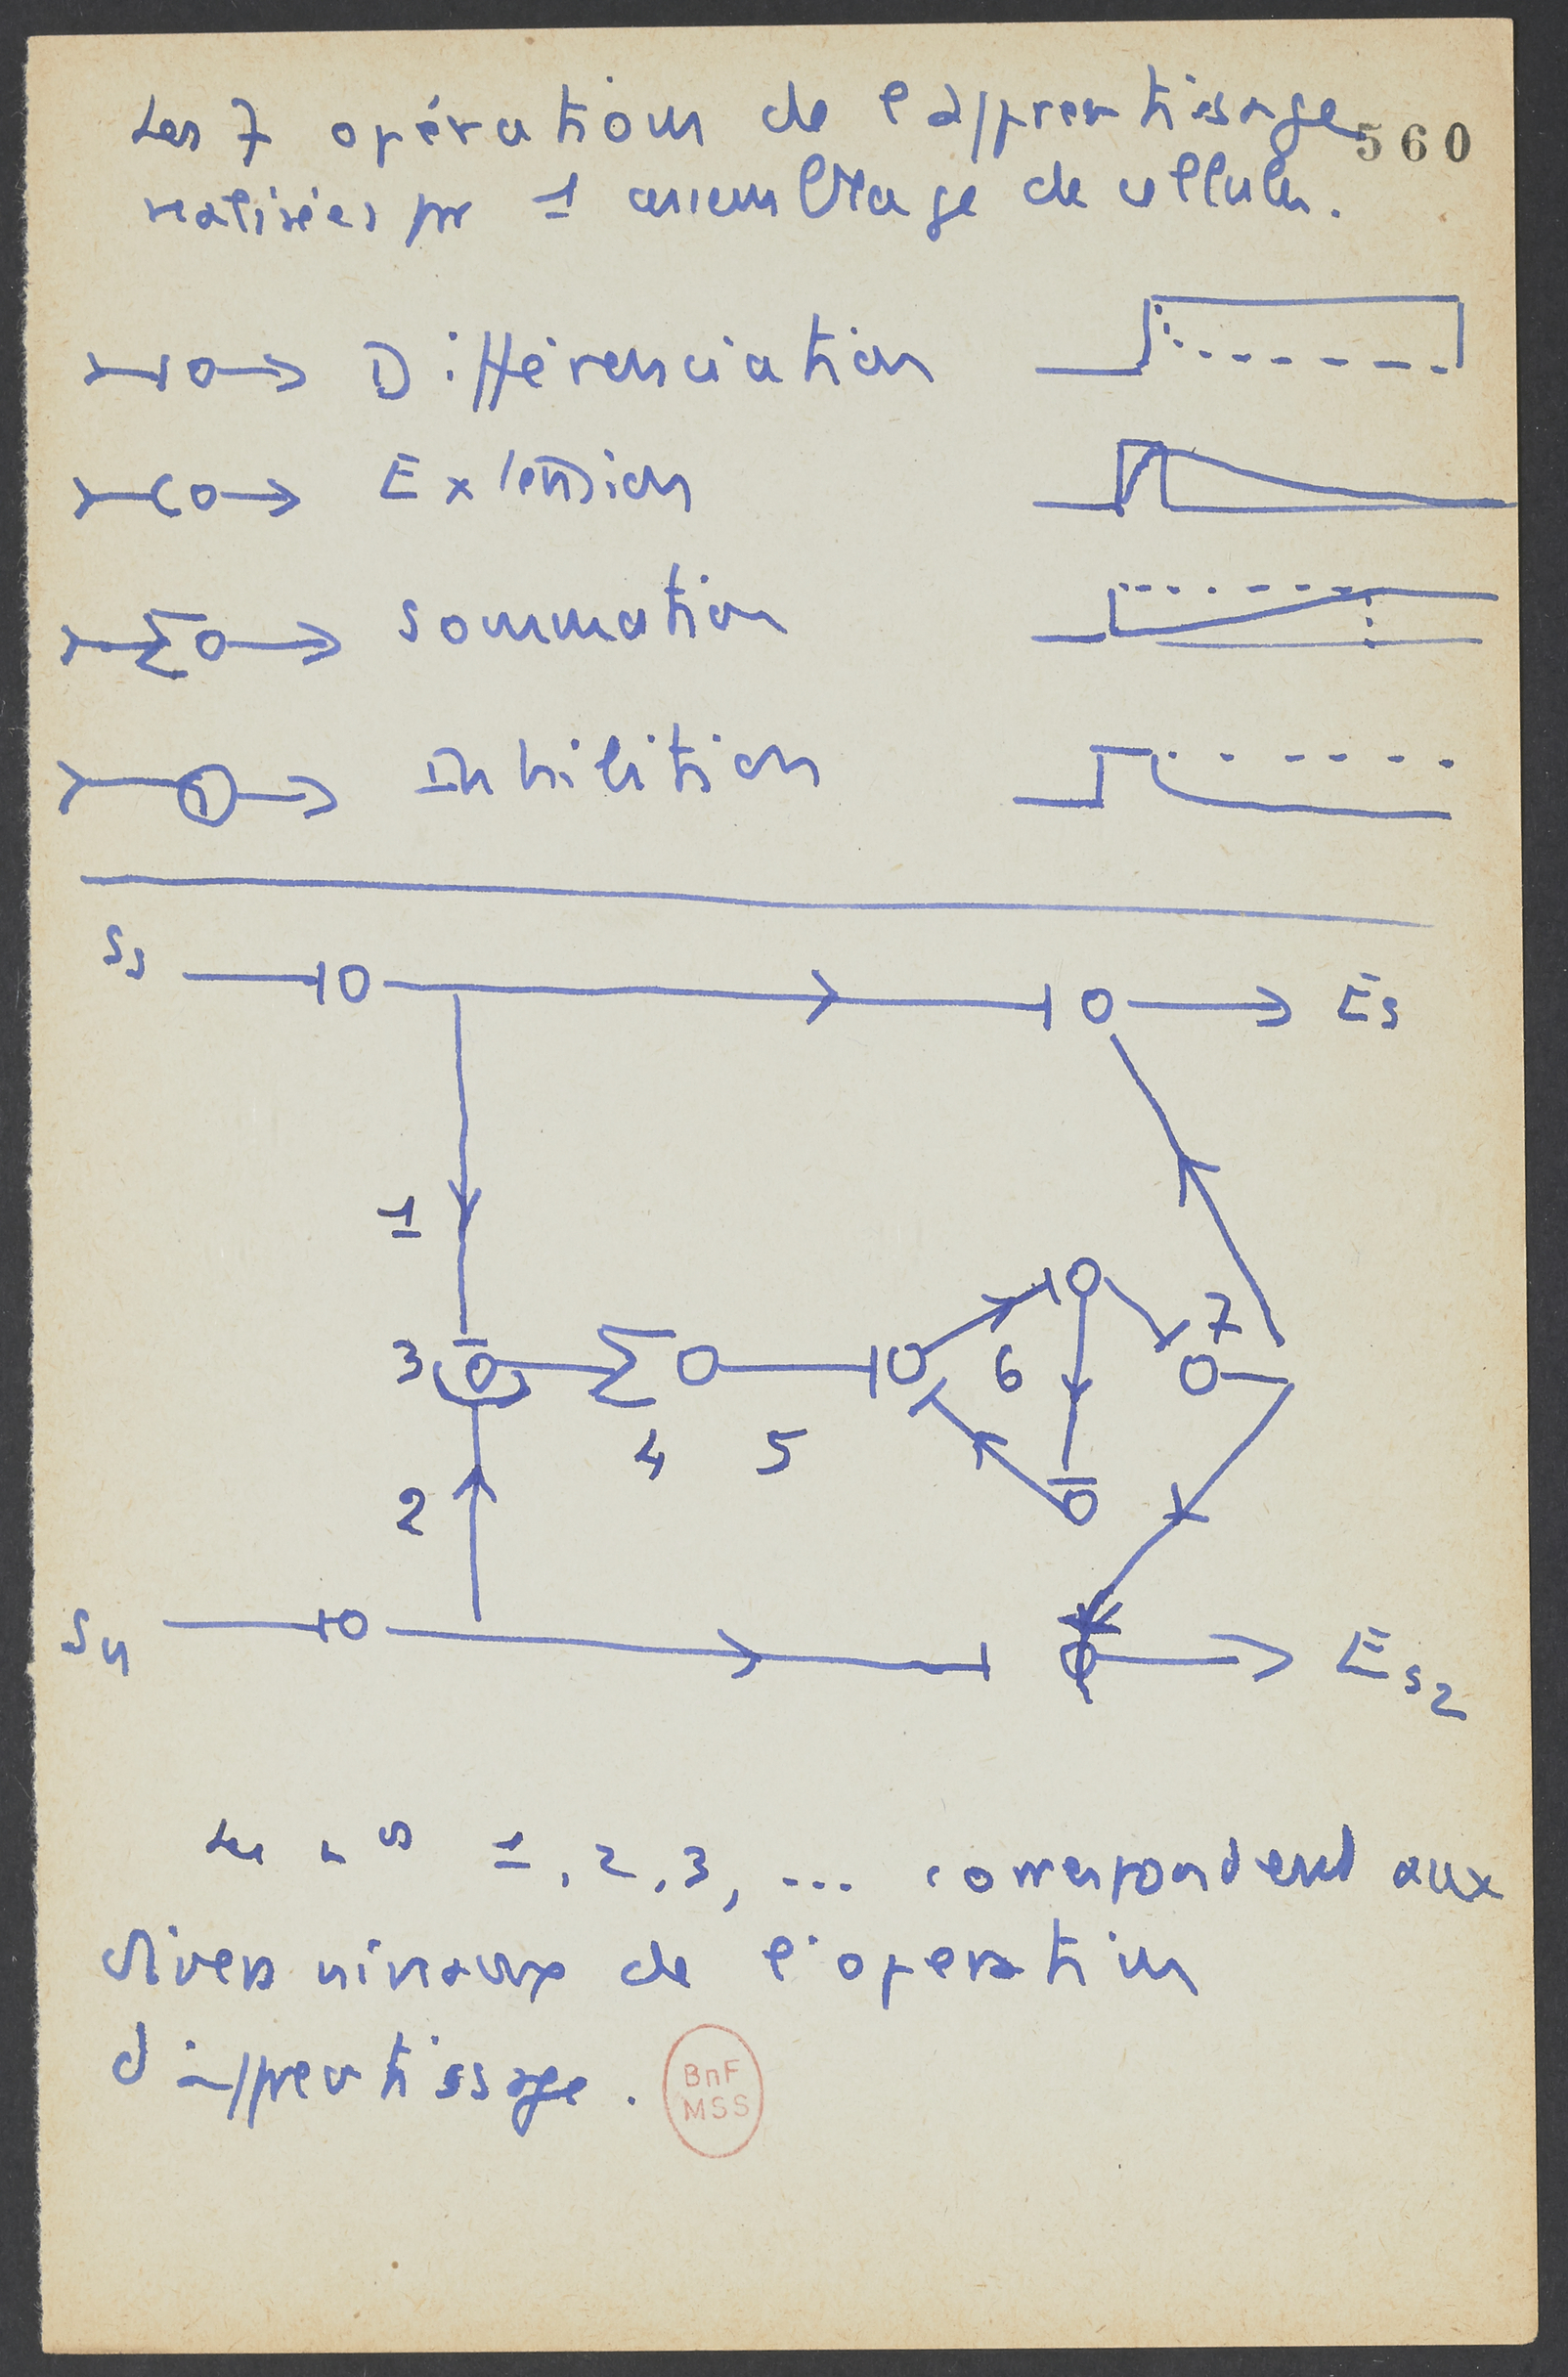 Les 7 opérations de l'apprentissage
560
réalisées par 1 assemblage de cellules.
Différenciation
Extension
Sommation
Inhibition
Ss
Es
1
7
3
6
4 5
2
Sn
Es2
Les nos 1, 2, 3, ... correspondent aux
divers niveaux de l'opération
d'apprentissage.
BnF
MSS